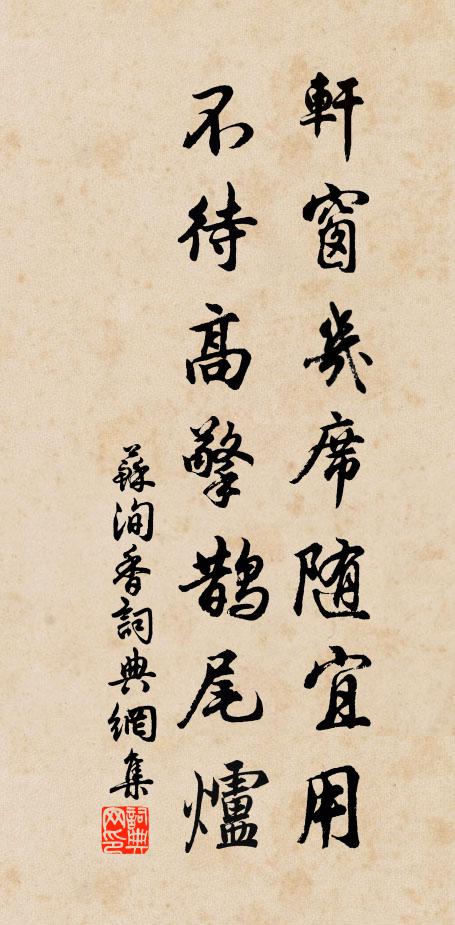 軒窗幾席随宜用
不待高擎鵲尾爐
蘇洵香詞典網集
詞典网印